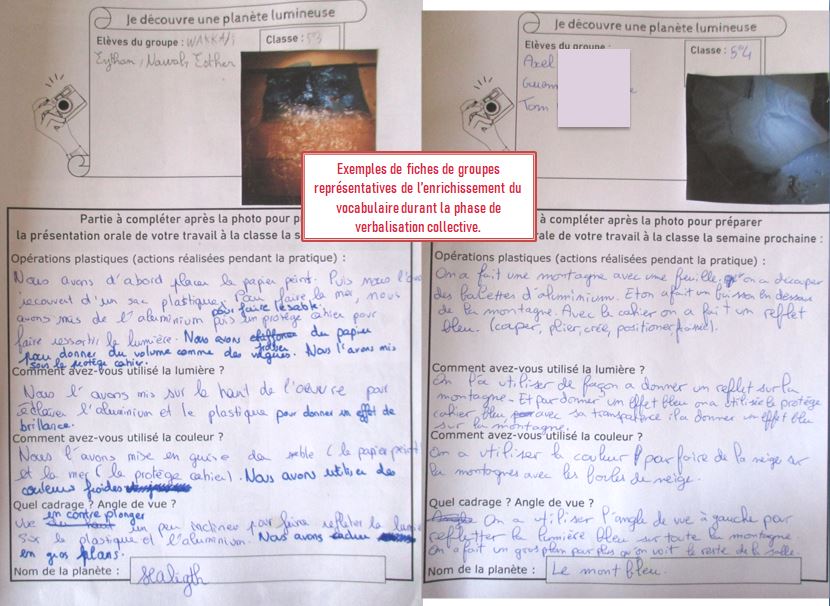 Je découvre une planète lumineuse
Elèves du groupe : WAKKA/i
Eythan, Nawals, Esther
Classe : 5°3
Partie à compléter après la photo pour p
la présentation orale de votre travail à la classe la s
Opérations plastiques (actions réalisées pendant la pratique) :
Nous avons d'abord placer le papier peint. Puis nous l'
recouvert d'un sac plastique, Pour faire la mer, nous
pour faire le sable.
avons mis de l'aluminium puis un protège cahier pour
faire ressortir la lumière. Nous avons du papier
froisser
pour donner du volume comme des vagues. Nous l'avons mis
sous le protège cahier.
Comment avez-vous utilisé la lumière ?
Nous l'avons mis sur le haut de l'oeuvre pour
éclairer l'aluminium et le plastique pour donner un effet de
brillance.
Comment avez-vous utilisé la couleur ?
Nous l'avons mise en guise de sable (le papier peint
et la mer (le protège cahier). Nous avons utiliser des
couleurs froides
Quel cadrage ? Angle de vue ?
en contre plonger
Vue un peu incliner pour faire refléter la lumi
sur le plastique et l'aluminium. Nous avons
en gros plans.
Nom de la planète : Sealigth
Exemples de fiches de groupes
représentatives de l'enrichissement du
vocabulaire durant la phase de
verbalisation collective.
Je découvre une planète lumineuse
Elèves du groupe :
Axel
Tom
Classe : 5°4
à compléter après la photo pour préparer
ale de votre travail à la classe la semaine prochaine :
Opérations plastiques (actions réalisées pendant la pratique) :
On a fait une montagne avec une feuille, qu'on a découper
des boulettes d'aluminium. Et on a fait un buisson en dessous
de la montagne. Avec le cahier on a fait un reflet
bleu. (couper, plier, crée, positioner, former).
Comment avez-vous utilisé la lumière ?
On l'a utiliser de façon a donner un reflet sur la
montagne. Et par donner un effet bleu on a utilisée le protège
cahier bleu avec sa transparence il a donner un effet bleu
sur la montagne.
Comment avez-vous utilisé la couleur ?
On a utiliser la couleur pour faire de la neige sur
la montagnes avec les boules de neige.
Quel cadrage ? Angle de vue ?
On a utiliser l'angle de vue à gauche pour
refletter la lumière bleu sur toute la montagne.
On a fait un gros plan pour plus qu'on voit le reste de la salle.
Nom de la planète : Le mont bleu.